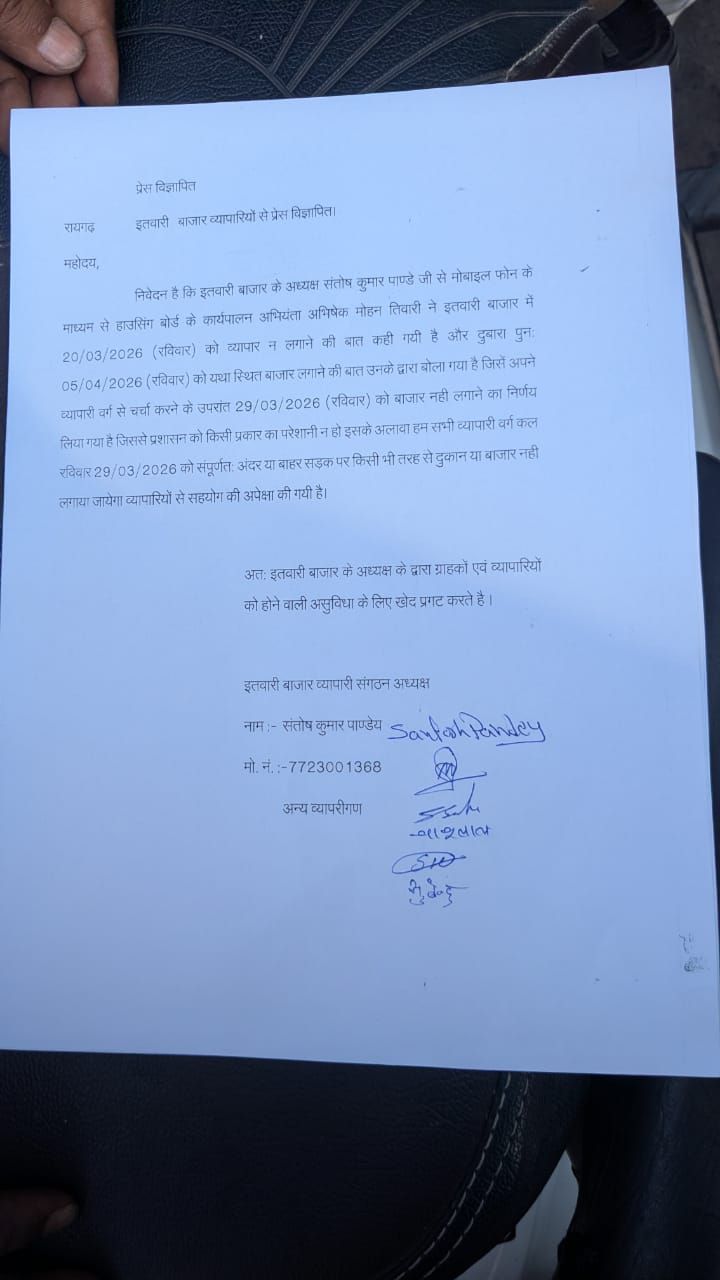 प्रेस विज्ञापित
रायगढ़ इतवारी बाजार व्यापारियों से प्रेस विज्ञापित।
महोदय,
निवेदन है कि इतवारी बाजार के अध्यक्ष संतोष कुमार पाण्डे जी से मोबाइल फोन के
माध्यम से हाउसिंग बोर्ड के कार्यपालन अभियंता अभिषेक मोहन तिवारी ने इतवारी बाजार में
20/03/2026 (रविवार) को व्यापार न लगाने की बात कही गयी है और दुबारा पुन:
05/04/2026 (रविवार) को यथा स्थित बाजार लगाने की बात उनके द्वारा बोला गया है जिसें अपने
व्यापारी वर्ग से चर्चा करने के उपरांत 29/03/2026 (रविवार) को बाजार नही लगाने का निर्णय
लिया गया है जिससे प्रशासन को किसी प्रकार का परेशानी न हो इसके अलावा हम सभी व्यापारी वर्ग कल
रविवार 29/03/2026 को संपूर्णत: अंदर या बाहर सड़क पर किसी भी तरह से दुकान या बाजार नही
लगाया जायेगा व्यापारियों से सहयोग की अपेक्षा की गयी है।
अत: इतवारी बाजार के अध्यक्ष के द्वारा ग्राहकों एवं व्यापारियों
को होने वाली असुविधा के लिए खेद प्रगट करते है।
इतवारी बाजार व्यापारी संगठन अध्यक्ष
नाम :- संतोष कुमार पाण्डेय Santosh Pandey
मो. नं. :-7723001368
अन्य व्यापरीगण